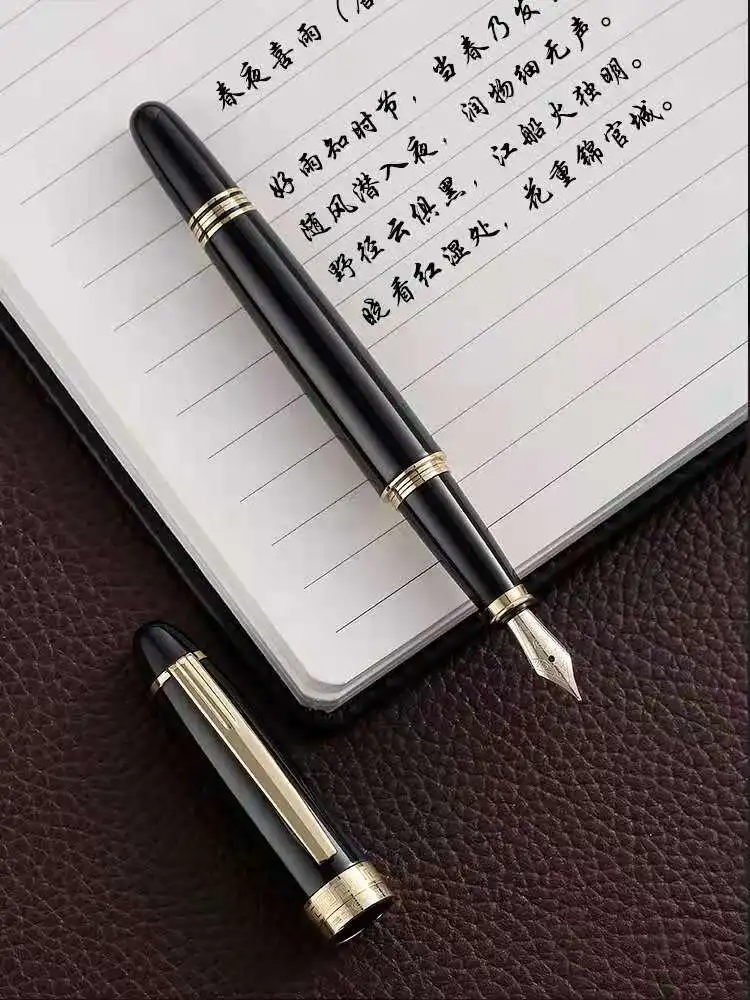 春夜喜雨（唐
好雨知时节，当春乃发
随风潜入夜，润物细无声。
野径云俱黑，江船火独明。
晓看红湿处，花重锦官城。